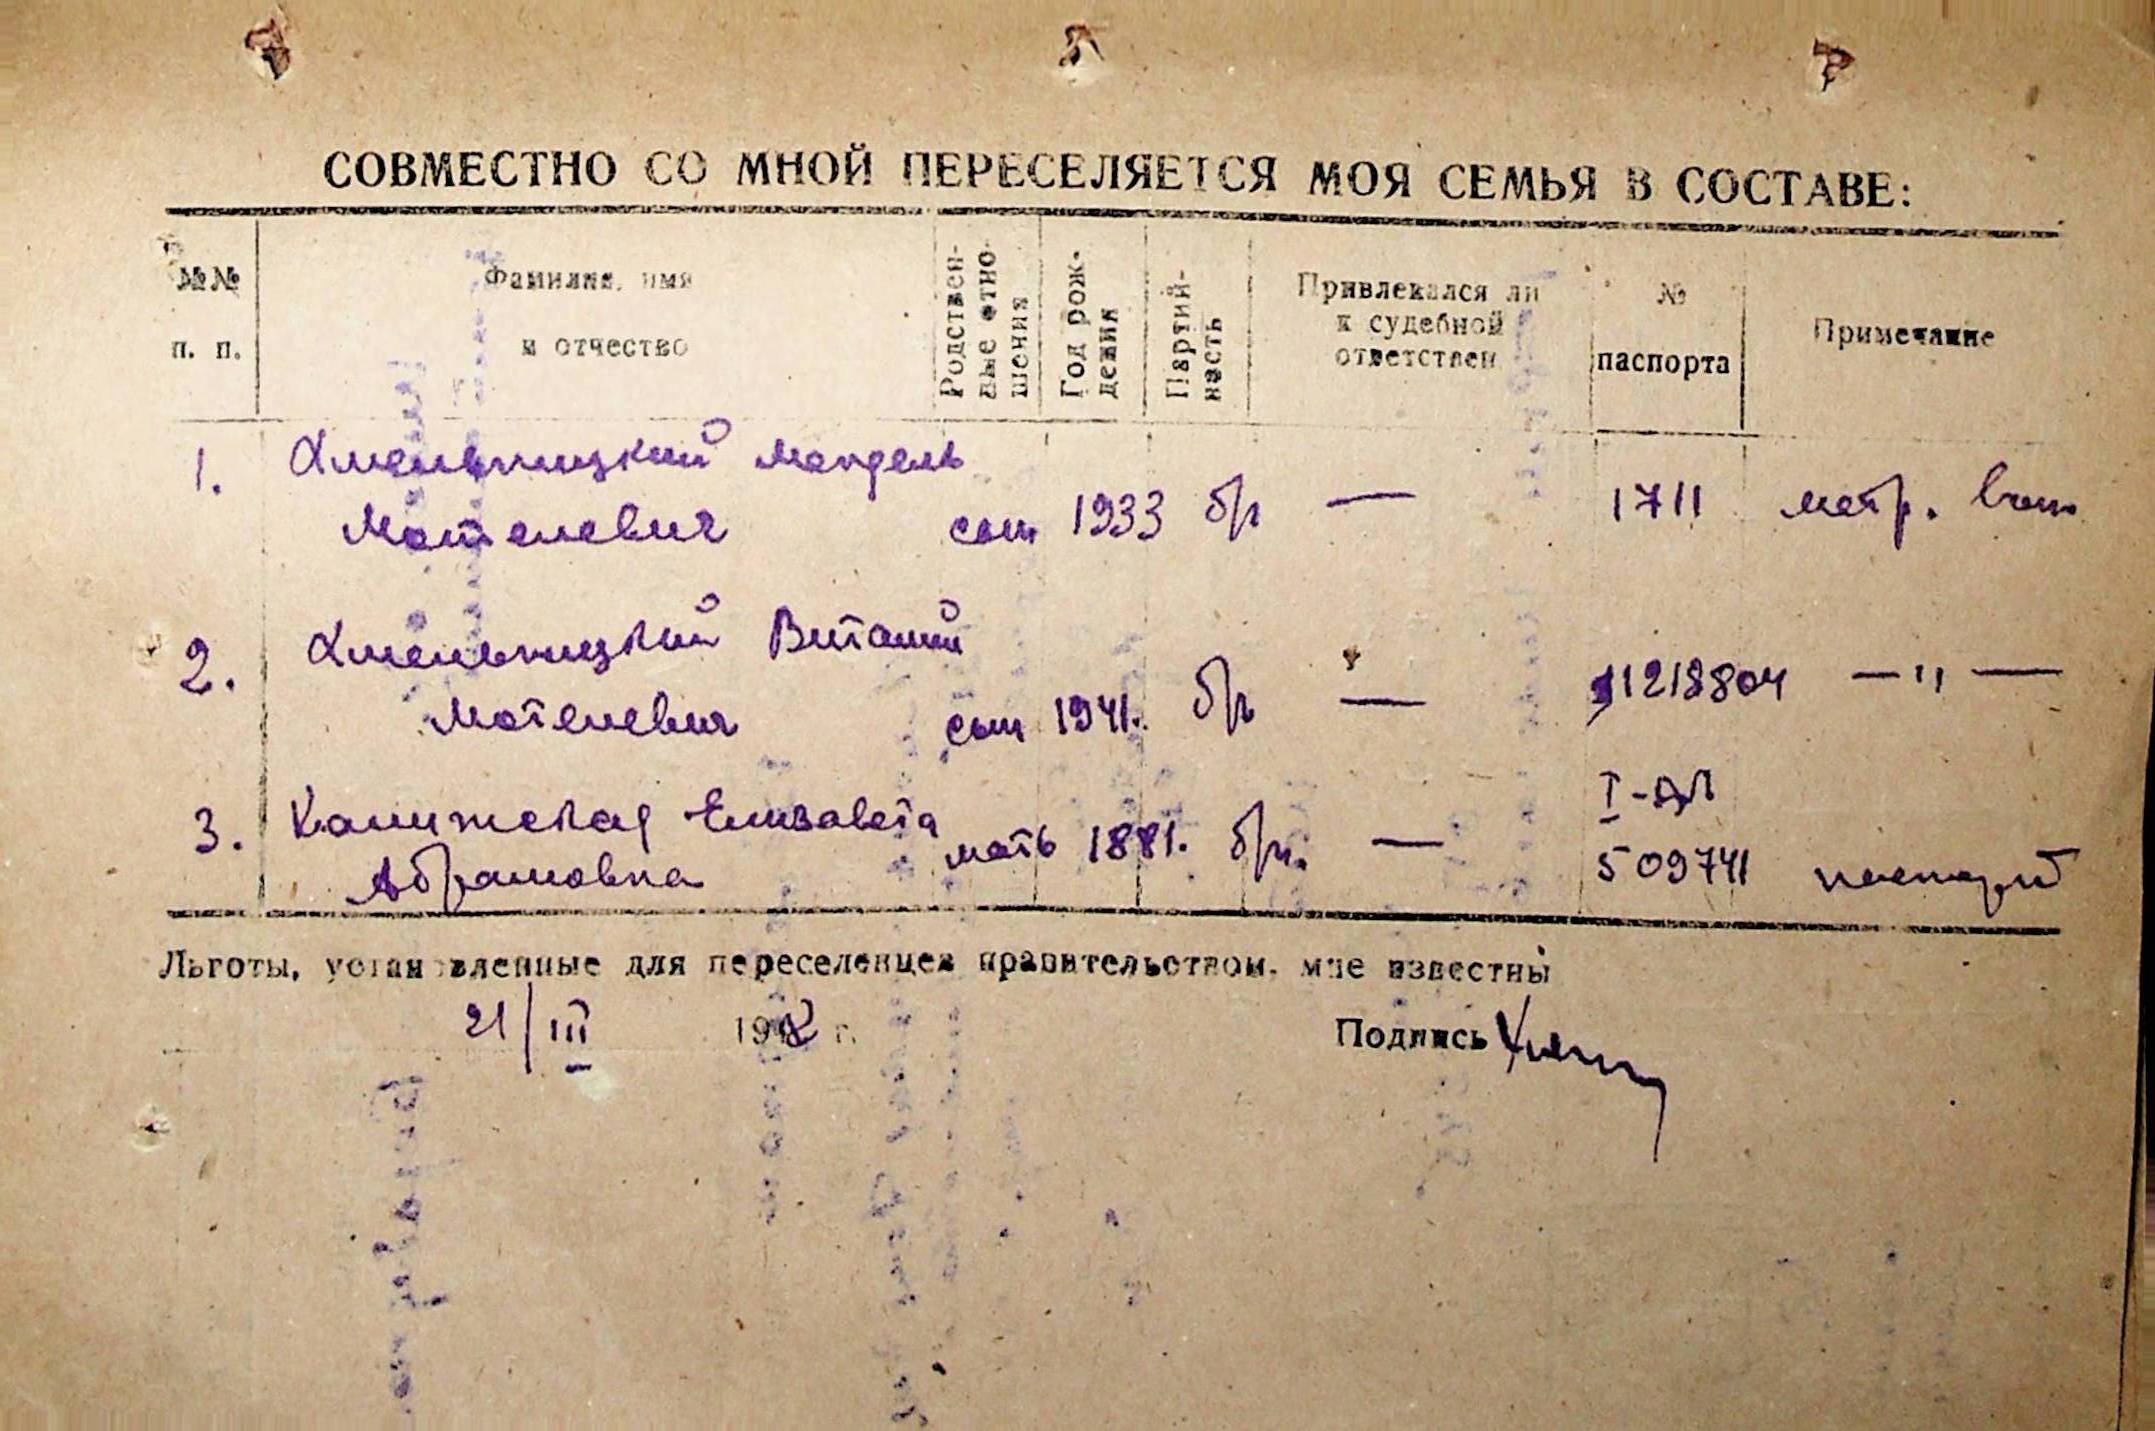 СОВМЕСТНО СО МНОЙ ПЕРЕСЕЛЯЕТСЯ МОЯ СЕМЬЯ В СОСТАВЕ:
№№ п. п.
Фамилия, имя и отчество
Родственные отношения
Год рождения
Партийность
Привлекался ли к судебной ответствен
№ паспорта
Примечание
1. Хмельницкий Мендель
Мотелевич сын 1933 б/п — 1711 метр.
2. Хмельницкий Виталий
Мотелевич сын 1941. б/п — 1218804 — " —
3. Елизавета
Абрамовна мать 1881. б/п. — I-АЛ
509741 паспорт
Льготы, установленные для переселенцев правительством, мне известны
21/III 1948 г. Подпись